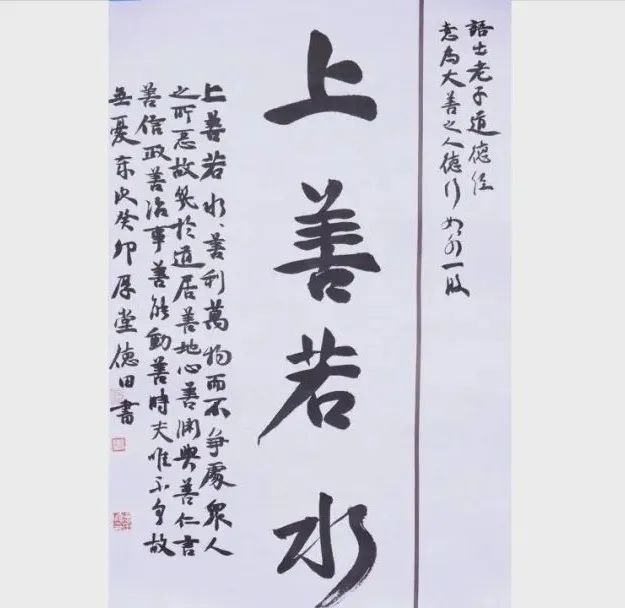 語出老子道德经
意为大善之人德行如水一般
上善若水
上善若水、善利萬物而不爭處眾人
之所惡故幾於道居善地心善渊與善仁言
善信政善治事善能動善時夫唯不争故
無憂次癸卯厚堂德田書